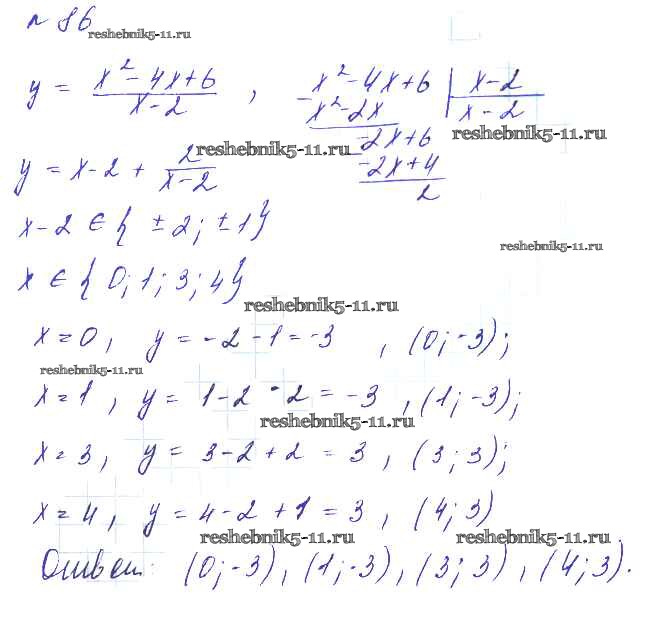 № 86
reshebnik5-11.ru
y = (x² - 4x + 6)/(x - 2) , x² - 4x + 6 | x - 2
- x² - 2x | x - 2
reshebnik5-11.ru
reshebnik5-11.ru
-2x + 6
y = x - 2 + 2/(x - 2) -2x + 4
2
x - 2 ∈ { ± 2 ; ± 1 }
reshebnik5-11.ru
x ∈ { 0 ; 1 ; 3 ; 4 }
reshebnik5-11.ru
x = 0 , y = -2 - 1 = -3 , (0 ; -3) ;
reshebnik5-11.ru
x = 1 , y = 1 - 2 - 2 = -3 , (1 ; -3) ;
reshebnik5-11.ru
x = 3 , y = 3 - 2 + 2 = 3 , (3 ; 3) ;
x = 4 , y = 4 - 2 + 1 = 3 , (4 ; 3)
reshebnik5-11.ru
reshebnik5-11.ru
Ответ: (0 ; -3) , (1 ; -3) , (3 ; 3) , (4 ; 3).